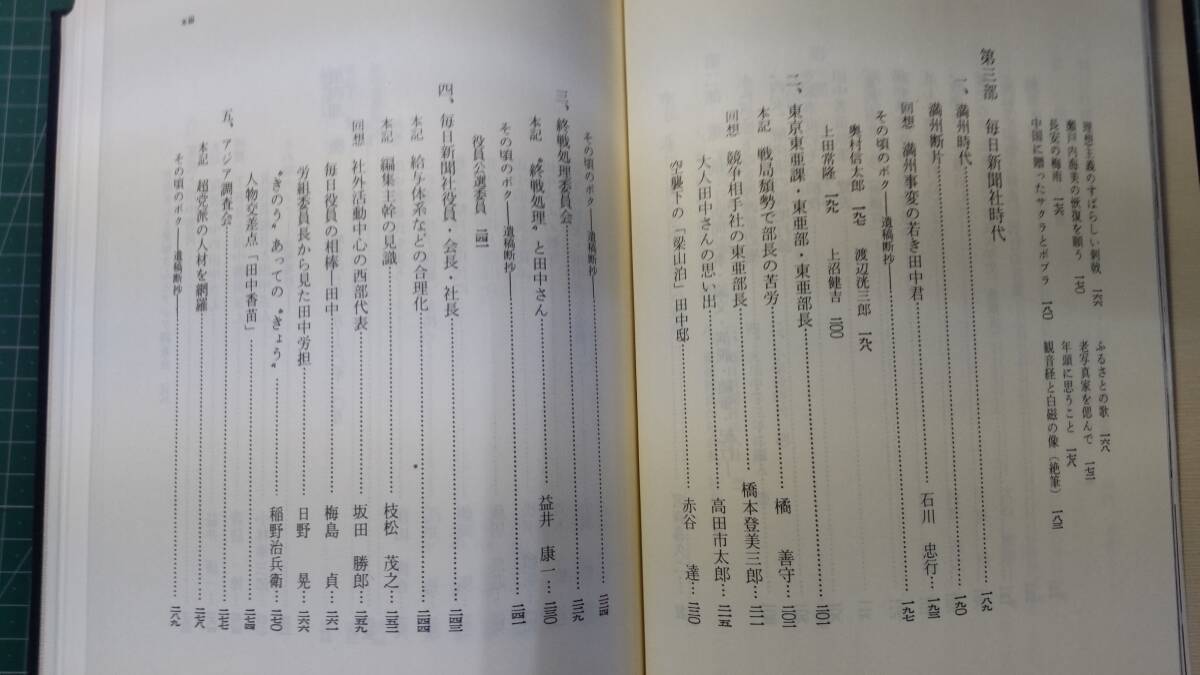 理想主義のすばらしい刺戟 一六六
瀬戸内海美の恢復を願う 一七〇
長安の梅雨 一七六
中国に贈ったサクラとポプラ 一八〇
ふるさとの歌 一六八
老写真家を偲んで 一七三
年頭に思うこと 一七八
観音経と白磁の像(絶筆) 一八三
第三部 毎日新聞社時代 一八九
一、満州時代 一九〇
満州断片 石川 忠行 一九三
回想 満州事変の若き田中君
その頃のボク――遺稿断抄―― 一九七
奥村信太郎 一九七 渡辺洸三郎 一九八
上田常隆 一九九 上沼健吉 二〇〇
二、東京東亜課・東亜部・東亜部長 二〇一
本記 戦局頽勢で部長の苦労 橘 善守 二〇二
回想 競争相手社の東亜部長 橋本登美三郎 二一一
大人田中さんの思い出 高田市太郎 二一五
空襲下の「梁山泊」田中邸 赤谷 達 二二〇
その頃のボク――遺稿断抄―― 二二四
三、終戦処理委員会 二二九
本記 〝終戦処理〟と田中さん 益井 康一 二三〇
その頃のボク――遺稿断抄―― 二四一
役員公選委員 二四一
四、毎日新聞社役員・会長・社長 二四三
本記 給与体系などの合理化 二四四
本記 編集主幹の見識 枝松 茂之 二五二
回想 社外活動中心の西部代表 坂田 勝郎 二五九
毎日役員の相棒―田中 梅島 貞 二六一
労組委員長から見た田中労担 日野 晃 二六六
〝きのう〟あっての〝きょう〟 稲野治兵衛 二七〇
人物交差点「田中香苗」 二七四
五、アジア調査会 二七七
本記 超党派の人材を網羅 二七八
その頃のボク――遺稿断抄―― 二八九
目次